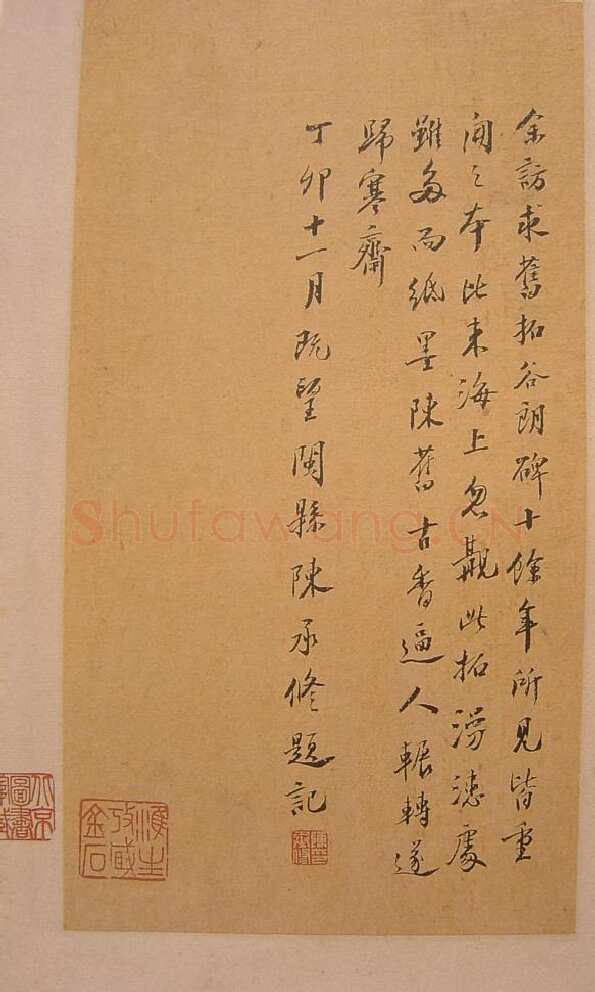 余訪求舊拓谷朗碑十餘年所見皆重
開之本比來海上忽覯此拓漫漶處
雖多而紙墨陳舊古香逼人輾轉遂
歸寒齋
丁卯十一月既望閩縣陳承修題記
淮生攷藏金石
Shufawang.CN